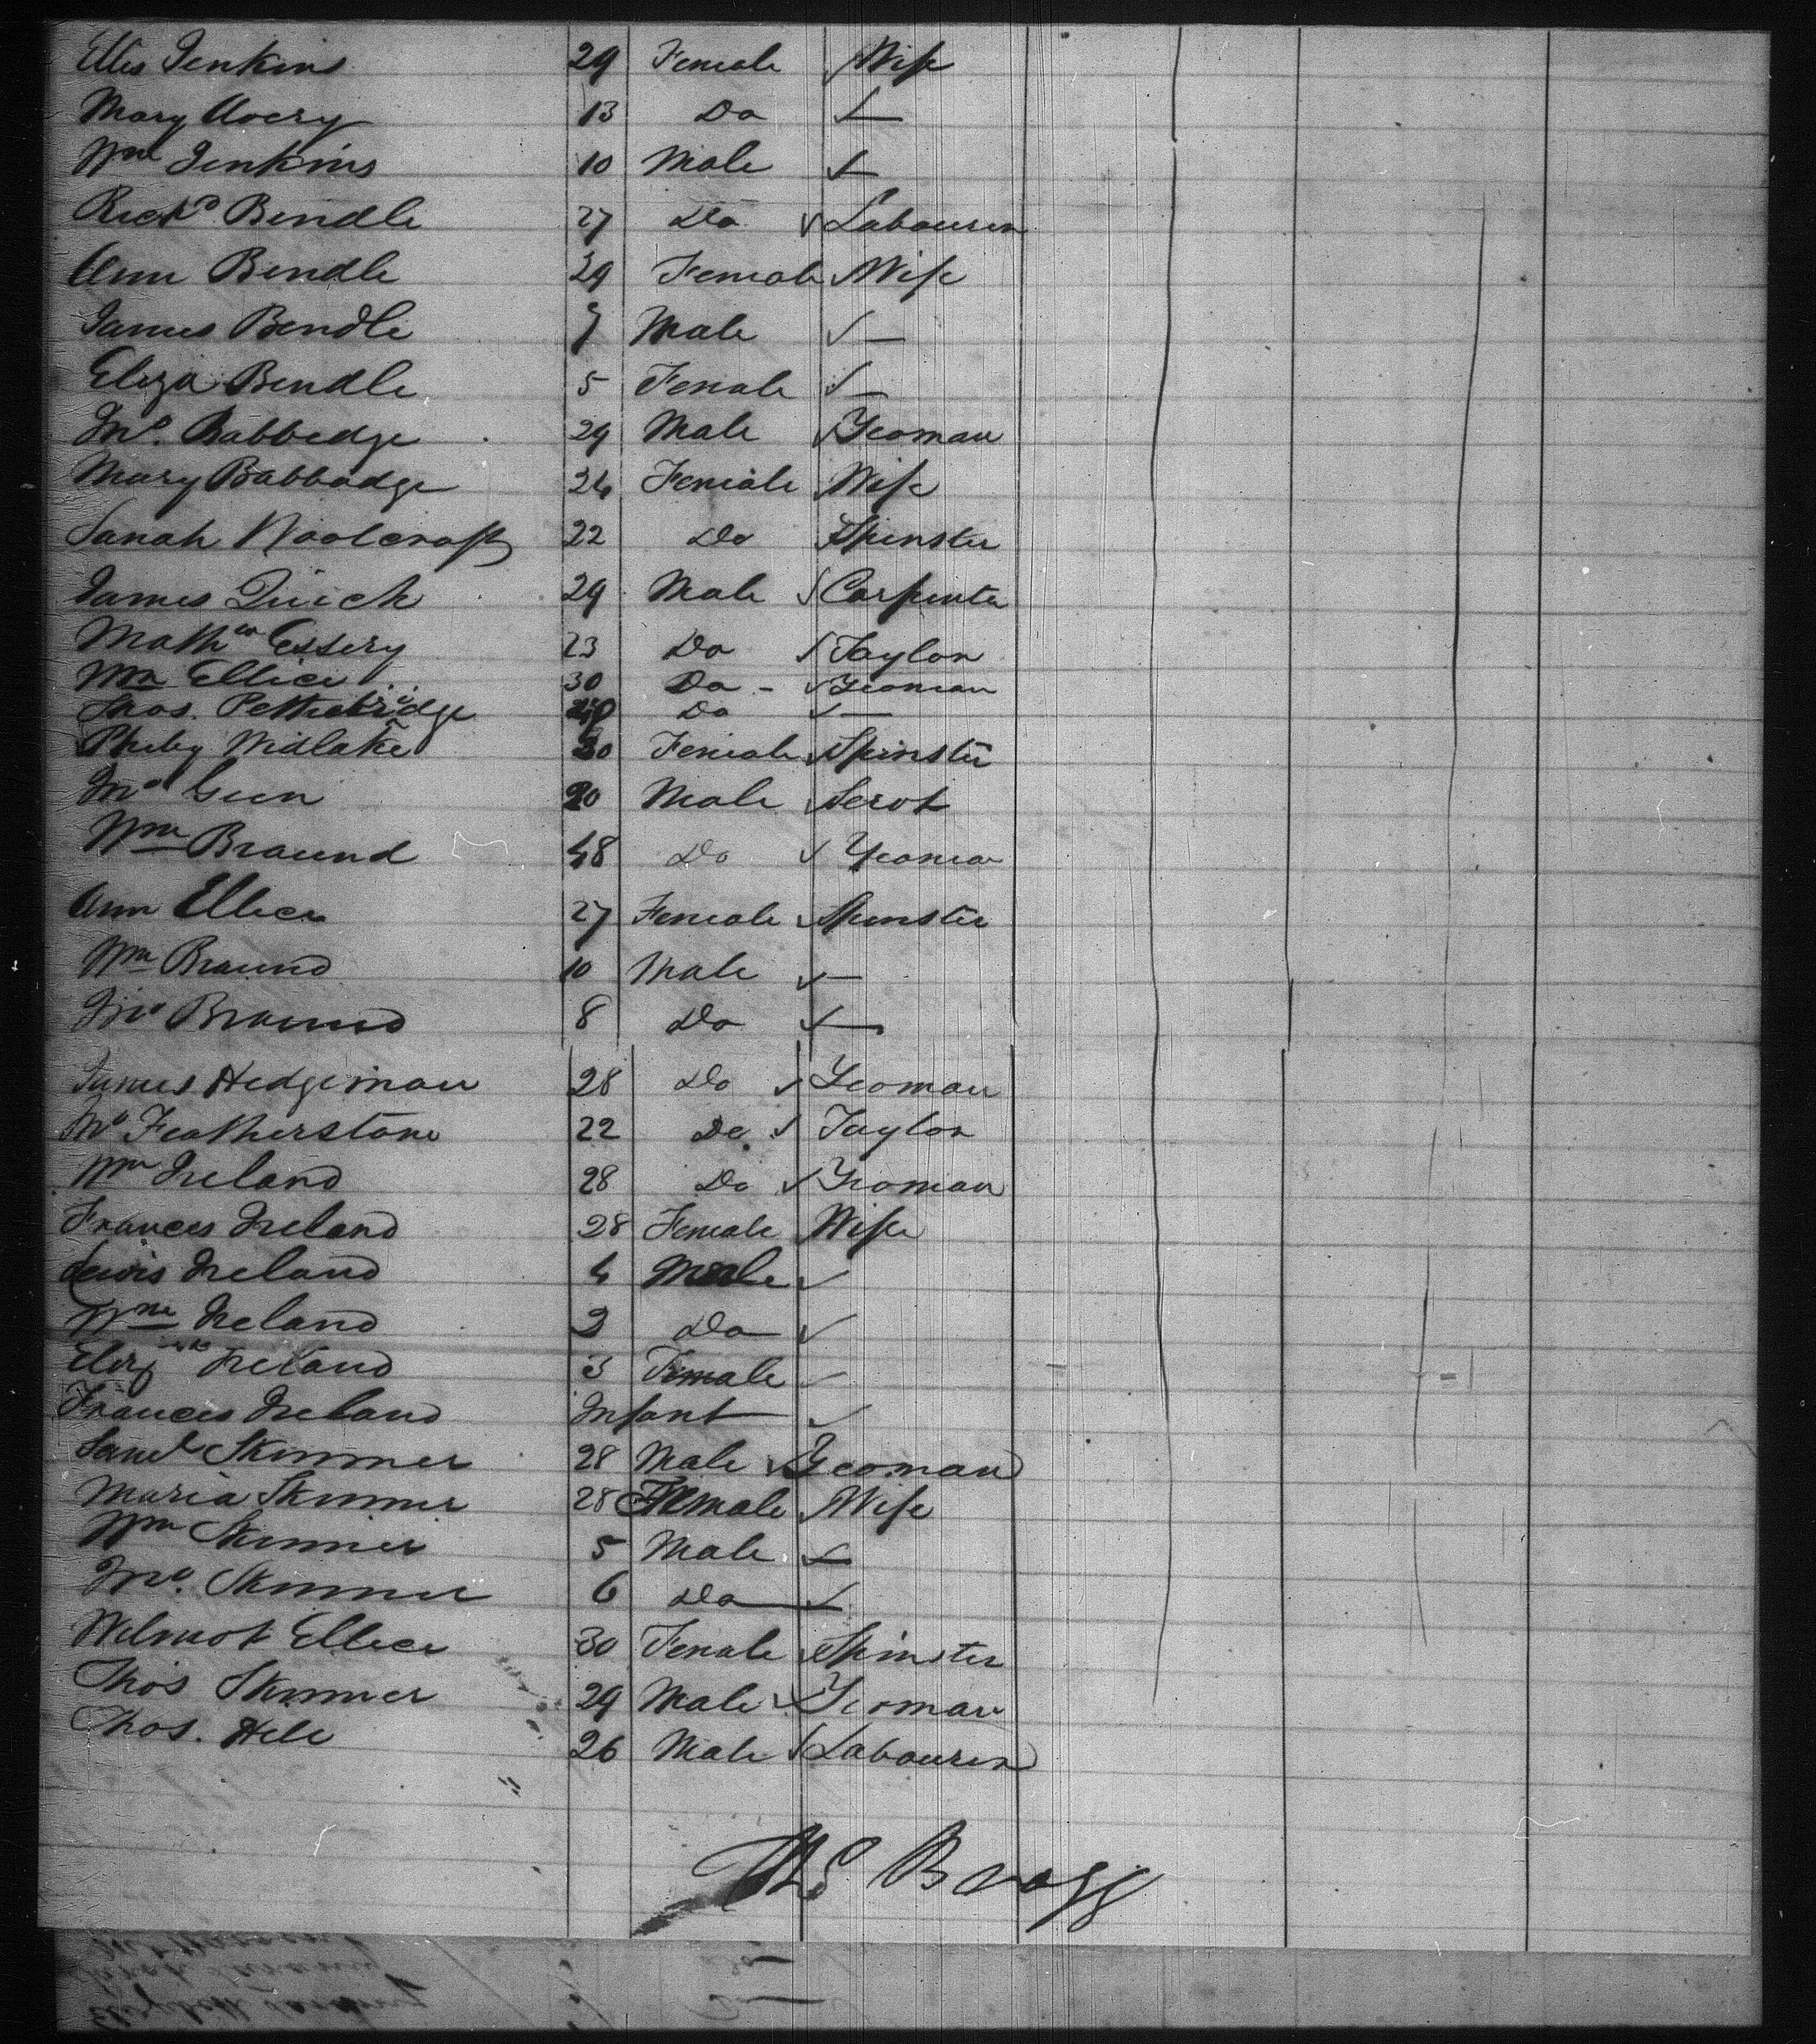 Elles Jenkins 29 Female Wife
Mary Avery 13 Do —
Wm Jenkins 10 Male —
Richd Bendle 27 Do Labourer
Ann Bendle 29 Female Wife
James Bendle 7 Male —
Eliza Bendle 5 Female —
Jno. Babbedge 29 Male Yeoman
Mary Babbadge 24 Female Wife
Sarah Woolcraft 22 Do Spinster
James Quick 29 Male Carpenter
Mathw Essery 23 Do Taylor
Wm Ellice 30 Do - Yeoman
Thos. Petherbridge Do —
Phily Widlake 30 Female Spinster
Jno Geen 20 Male Servt
Wm Braund 48 Do Yeoman
Ann Ellice 27 Female Spinster
Wm Braund 10 Male —
Jno Braund 8 Do —
James Hedgeman 28 Do Yeoman
Jno Featherstone 22 Do Taylor
Wm Ireland 28 Do Yeoman
Frances Ireland 28 Female Wife
Lewis Ireland 4 Male
Wm Ireland 2 Do
Elizth Ireland 3 Female
Frances Ireland Infant
Saml Skinner 28 Male Yeoman
Maria Skinner 28 Female Wife
Wm Skinner 5 Male —
Jno. Skinner 6 Do —
Wilmot Ellice 30 Female Spinster
Thos Skinner 29 Male Yeoman
Thos. Hele 26 Male Labourer
Bragg